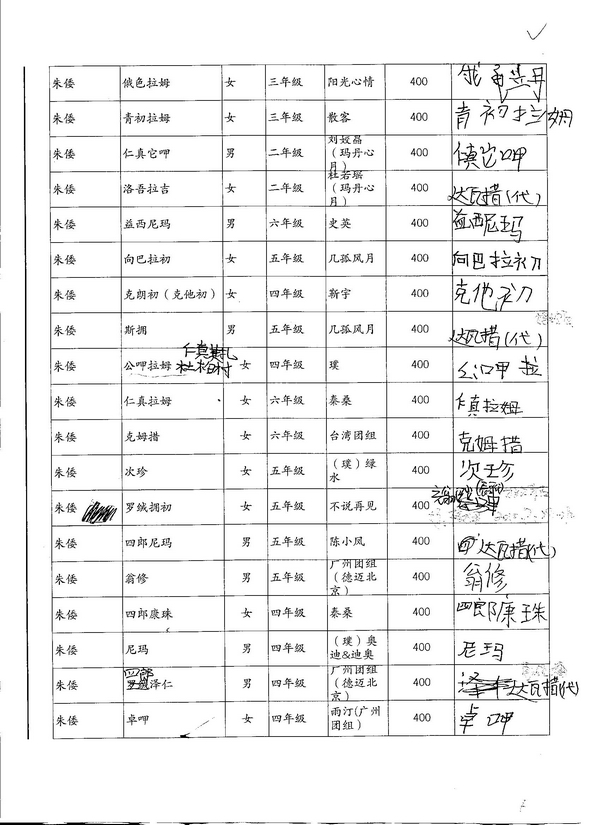 朱倭 俄色拉姆 女 三年级 阳光心情 400
朱倭 青初拉姆 女 三年级 散客 400 青初拉姆
朱倭 仁真它呷 男 二年级 刘姣磊（玛丹心月） 400 真它呷
朱倭 洛吾拉吉 女 二年级 杜若瑶（玛丹心月） 400 达瓦措(代)
朱倭 益西尼玛 男 六年级 史英 400 益西尼玛
朱倭 向巴拉初 女 五年级 几孤风月 400 向巴拉初
朱倭 克朗初（克他初） 女 四年级 新宇 400 克他初
朱倭 斯拥 男 五年级 几孤风月 400 达瓦措(代)
朱倭 公呷拉姆 女 四年级 璞 400 公呷拉
朱倭 仁真拉姆 女 六年级 秦桑 400 仁真拉姆
朱倭 克姆措 女 六年级 台湾团组 400 克姆措
朱倭 次珍 女 五年级 （璞）绿水 400 次珍
朱倭 罗绒拥初 女 五年级 不说再见 400
朱倭 四郎尼玛 男 五年级 陈小凤 400 达瓦措(代)
朱倭 翁修 男 五年级 广州团组（德迈北京） 400 翁修
朱倭 四郎康珠 女 四年级 秦桑 400 四郎康珠
朱倭 尼玛 男 四年级 （璞）奥迪&迪奥 400 尼玛
朱倭 四郎泽仁 男 四年级 广州团组（德迈北京） 400 达瓦措(代)
朱倭 卓呷 女 四年级 雨汀(广州团组） 400 卓呷